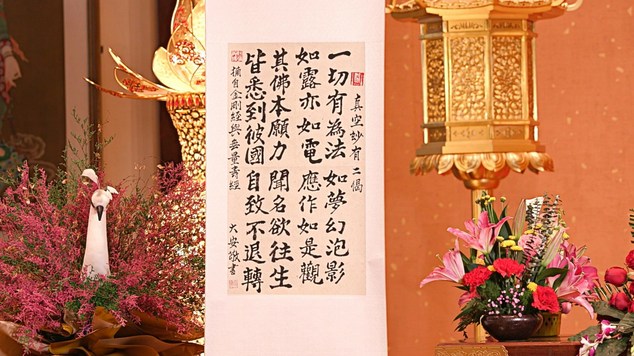 真空妙有二偈
一切有為法 如夢幻泡影
如露亦如電 應作如是觀
其佛本願力 聞名欲往生
皆悉到彼國 自致不退轉
摘自金剛經與無量壽經
大安敬書